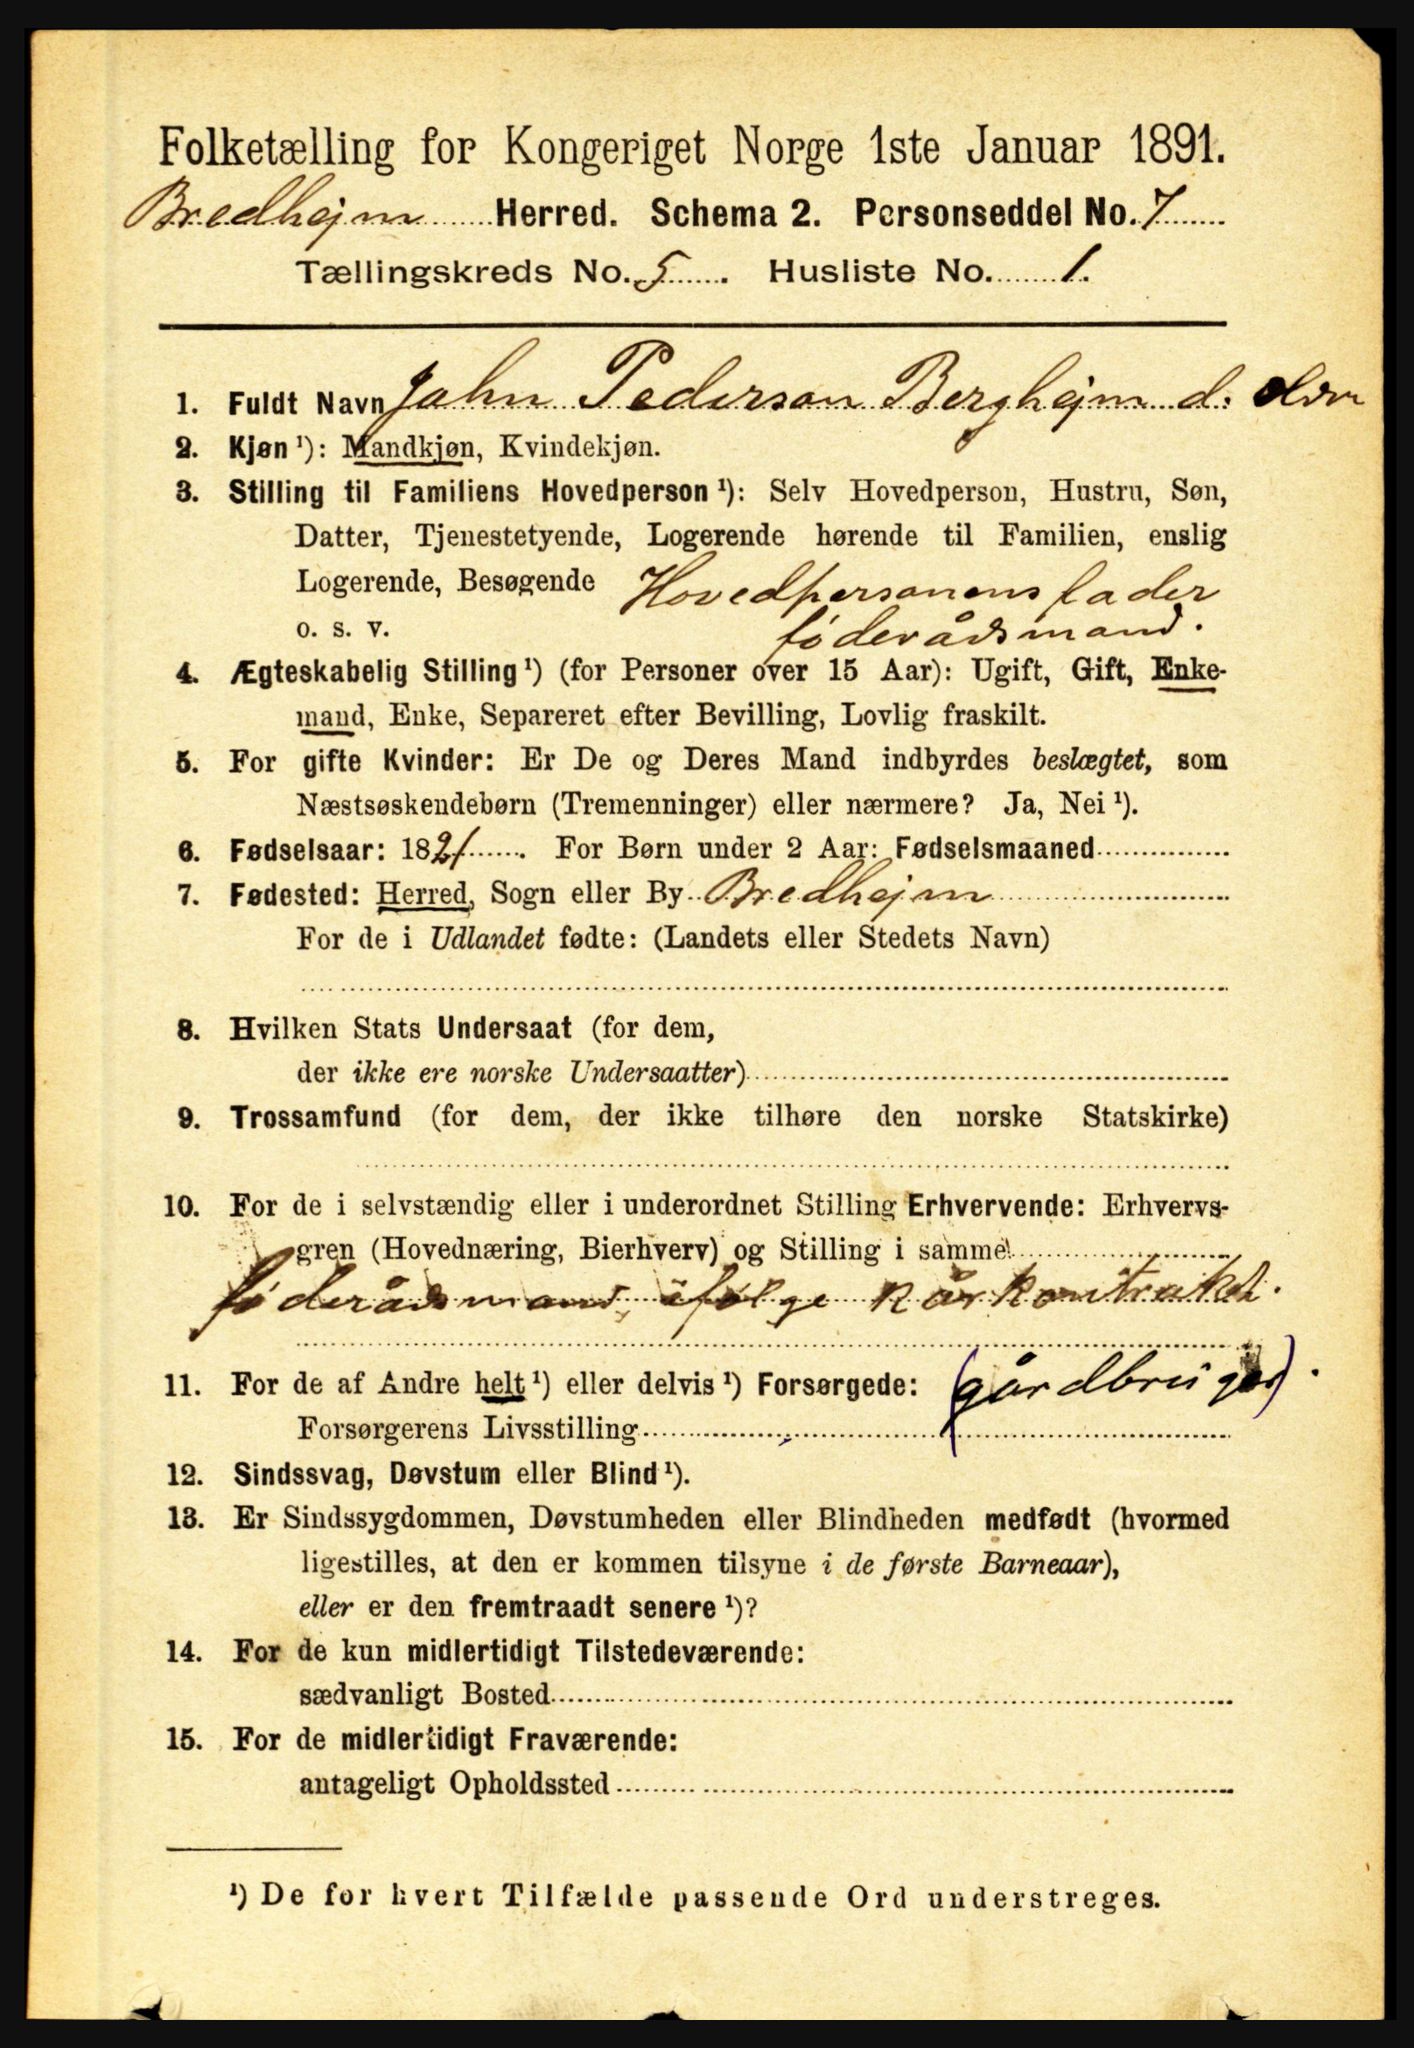 Folketælling for Kongeriget Norge 1ste Januar 1891.
Bredhejm Herred. Schema 2. Personseddel No. 7
Tællingskreds No. 5. Husliste No. 1.
1. Fuldt Navn John Pederson Berghejm d.
2. Kjøn ¹): Mandkjøn, Kvindekjøn.
3. Stilling til Familiens Hovedperson ¹): Selv Hovedperson, Hustru, Søn,
Datter, Tjenestetyende, Logerende hørende til Familien, enslig
Logerende, Besøgende Hovedpersonens fader
o. s. v. føderådsmand.
4. Ægteskabelig Stilling ¹) (for Personer over 15 Aar): Ugift, Gift, Enke-
mand, Enke, Separeret efter Bevilling, Lovlig fraskilt.
5. For gifte Kvinder: Er De og Deres Mand indbyrdes beslægtet, som
Næstsøskendebørn (Tremenninger) eller nærmere? Ja, Nei ¹).
6. Fødselsaar: 1821. For Børn under 2 Aar: Fødselsmaaned
7. Fødested: Herred, Sogn eller By Bredhejm
For de i Udlandet fødte: (Landets eller Stedets Navn)
8. Hvilken Stats Undersaat (for dem,
der ikke ere norske Undersaatter)
9. Trossamfund (for dem, der ikke tilhøre den norske Statskirke)
10. For de i selvstændig eller i underordnet Stilling Erhvervende: Erhvervs-
gren (Hovednæring, Bierhverv) og Stilling i samme
føderådsmand, ifølge kårkontrakt.
11. For de af Andre helt ¹) eller delvis ¹) Forsørgede: (gårdbruger).
Forsørgerens Livsstilling
12. Sindssvag, Døvstum eller Blind ¹).
13. Er Sindssygdommen, Døvstumheden eller Blindheden medfødt (hvormed
ligestilles, at den er kommen tilsyne i de første Barneaar),
eller er den fremtraadt senere ¹)?
14. For de kun midlertidigt Tilstedeværende:
sædvanligt Bosted
15. For de midlertidigt Fraværende:
antageligt Opholdssted
¹) De for hvert Tilfælde passende Ord understreges.